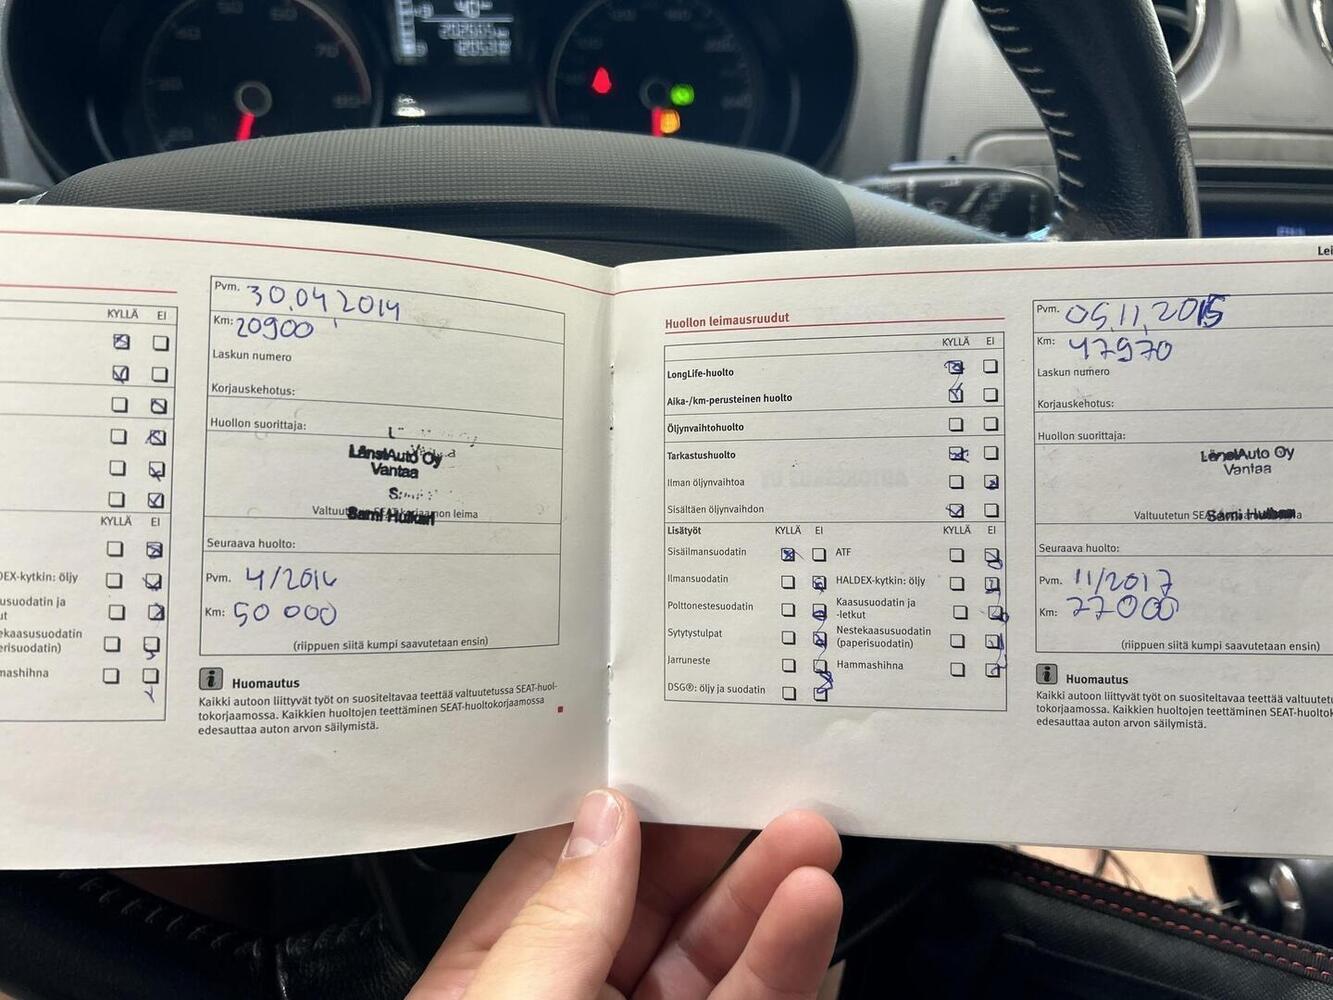 KYLLÄ EI
KYLLÄ EI
DEX-kytkin: öljy
usuodatin ja
ut
ekaasusuodatin
erisuodatin)
mashihna
Pvm. 30.04.2014
Km: 20900
Laskun numero
Korjauskehotus:
Huollon suorittaja:
LänsiAuto Oy
Vantaa
Seuraava huolto:
Pvm. 4/2016
Km: 50 000
(riippuen siitä kumpi saavutetaan ensin)
i Huomautus
Kaikki autoon liittyvät työt on suositeltavaa teettää valtuutetussa SEAT-huol-
tokorjaamossa. Kaikkien huoltojen teettäminen SEAT-huoltokorjaamossa
edesauttaa auton arvon säilymistä.
Lei
Huollon leimausruudut
KYLLÄ EI
LongLife-huolto
Aika-/km-perusteinen huolto
Öljynvaihtohuolto
Tarkastushuolto
Ilman öljynvaihtoa
Sisältäen öljynvaihdon
Lisätyöt KYLLÄ EI KYLLÄ EI
Sisäilmansuodatin ATF
Ilmansuodatin HALDEX-kytkin: öljy
Polttonestesuodatin Kaasusuodatin ja
-letkut
Sytytystulpat Nestekaasusuodatin
(paperisuodatin)
Jarruneste Hammashihna
DSG®: öljy ja suodatin
Pvm. 05.11.2015
Km: 47970
Laskun numero
Korjauskehotus:
Huollon suorittaja:
LänsiAuto Oy
Vantaa
Valtuutetun SEA
Seuraava huolto:
Pvm. 11/2017
Km: 77000
(riippuen siitä kumpi saavutetaan ensin)
i Huomautus
Kaikki autoon liittyvät työt on suositeltavaa teettää valtuutet
tokorjaamossa. Kaikkien huoltojen teettäminen SEAT-huoltok
edesauttaa auton arvon säilymistä.